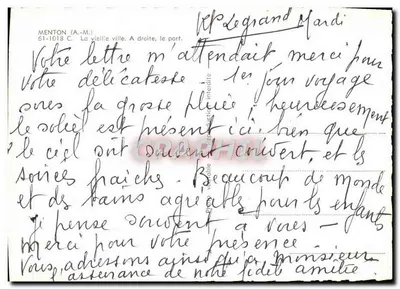 Legrand Mardi
MENTON (A.-M.)
61-1013 C. La vieille ville. A droite, le port.
Votre lettre m'attendait merci pour
votre délicatesse 1er jour voyage
sous la grosse pluie ! heureusement
le soleil est présent ici, bien que
le ciel soit souvent couvert, et les
soirées fraiches Beaucoup de monde
et des bains agréables pour les enfants
Je pense souvent à vous –
merci pour votre présence
Vous adressons ainsi qu'à monsieur
l'assurance de notre fidèle amitié